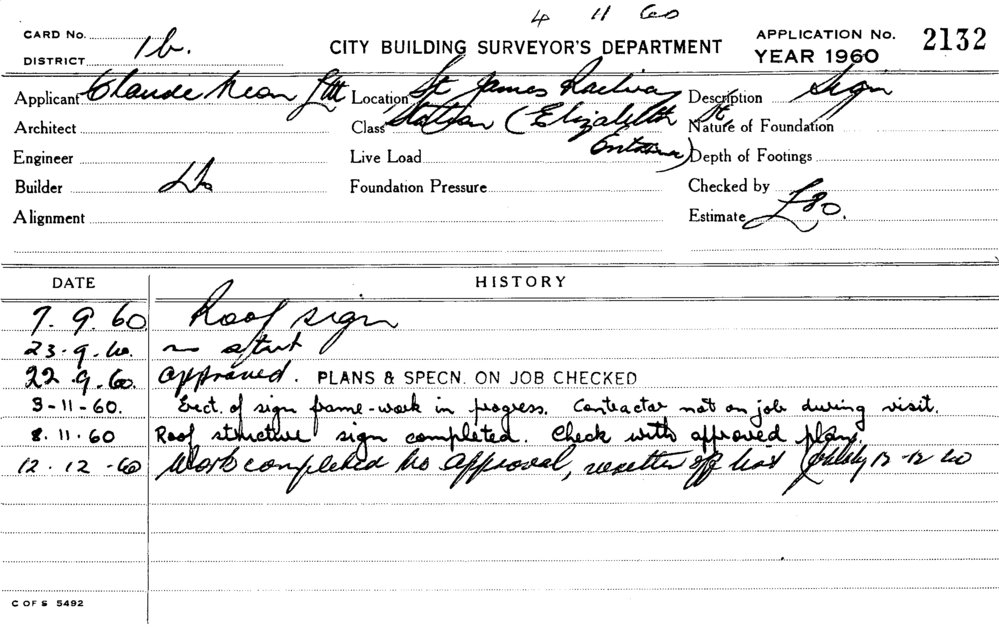 4 11 60
CARD No.
DISTRICT 1b.
CITY BUILDING SURVEYOR'S DEPARTMENT
APPLICATION No. 2132
YEAR 1960
Applicant Claude Neon Ltd Location St James Railway Description Sign
Architect Class Station (Elizabeth St Nature of Foundation
Engineer Live Load Entrance) Depth of Footings
Builder Do Foundation Pressure Checked by
Alignment Estimate £80.
DATE HISTORY
7. 9. 60 Roof sign
23-9-60. no start
22.9.60. approved. PLANS & SPECN. ON JOB CHECKED
3-11-60. Erect. of sign frame-work in progress. Contractor not on job during visit.
8.11.60 Roof structure sign completed. Check with approved plan.
12.12-60 Work completed to approval, off list 12-12 60
C OF S 5492